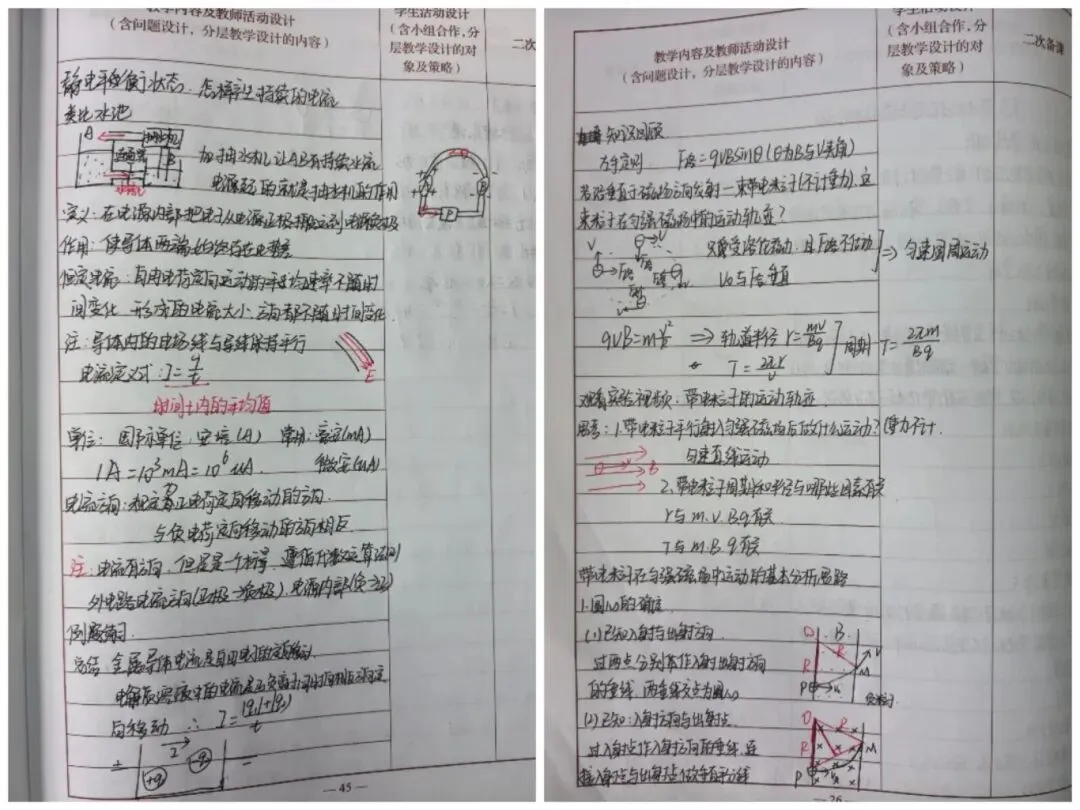 教学内容及教师活动设计
(含问题设计，分层教学设计的内容)
学生活动设计
(含小组合作，分
层教学设计的对
象及策略)
二次
静电平衡状态. 怎样产生持续的电流
类比水池
A
B
加抽水机让AB有持续水流
电源起的就是抽水机的作用
定义:在电源内部把电子从电源正极搬运到电源负极
作用:使导体两端始终存在电势差
恒定电流:自由电荷定向运动的平均速率不随时
间变化 形成的电流大小、方向都不随时间变化.
注:导体内的电场线与导线保持平行
E
电流定义式:I=q/t
时间t内的平均值
单位: 国际单位:安培(A) 常用:毫安(mA)
1A=10³mA=10⁶μA. 微安(μA)
电流方向:规定正电荷定向移动的方向.
与负电荷定向移动的方向相反
注:电流有方向，但是是一个标量，遵循代数运算法则
外电路电流方向(正极→负极). 电源内部(负→正)
例题练习.
总结 金属导体电流是自由电子的定向移动
电解质溶液中的电流是正负离子同时向相反方向定
向移动 ∴ I=(|q₁|+|q₂|)/t
I
+ +q -q -
— 45 —
教学内容及教师活动设计
(含问题设计，分层教学设计的内容)
学生活动设计
(含小组合作，分
层教学设计的对
象及策略)
二次备课
知识回顾
左手定则 F洛=qVBsinθ(θ为B与V夹角)
若沿垂直于磁场方向发射一束带电粒子(不计重力).这
束粒子在匀强磁场中的运动轨迹?
只受洛伦兹力，且F洛不做功
V₀与F洛垂直
⇒ 匀速圆周运动
qVB=mV²/r ⇒ 轨道半径 r=mV/Bq
T=2πr/V
周期 T=2πm/Bq
观看实验视频:带电粒子的运动轨迹.
思考:1.带电粒子平行射入匀强磁场后做什么运动?(重力不计.
V B 匀速直线运动
2.带电粒子周期和半径与哪些因素有关
r与m.V.B.q有关
T与m.B.q有关
带电粒子在匀强磁场中运动的基本分析思路
1.圆心的确定.
(1)已知入射与出射方向
过两点分别作入射出射方向
的垂线，两垂线交点为圆心
O B R R M V P V₀
(2)已知:入射方向与出射点
过入射点作入射方向的垂线，连
接入射点与出射点做垂直平分线
O R R M P V₀
— 26